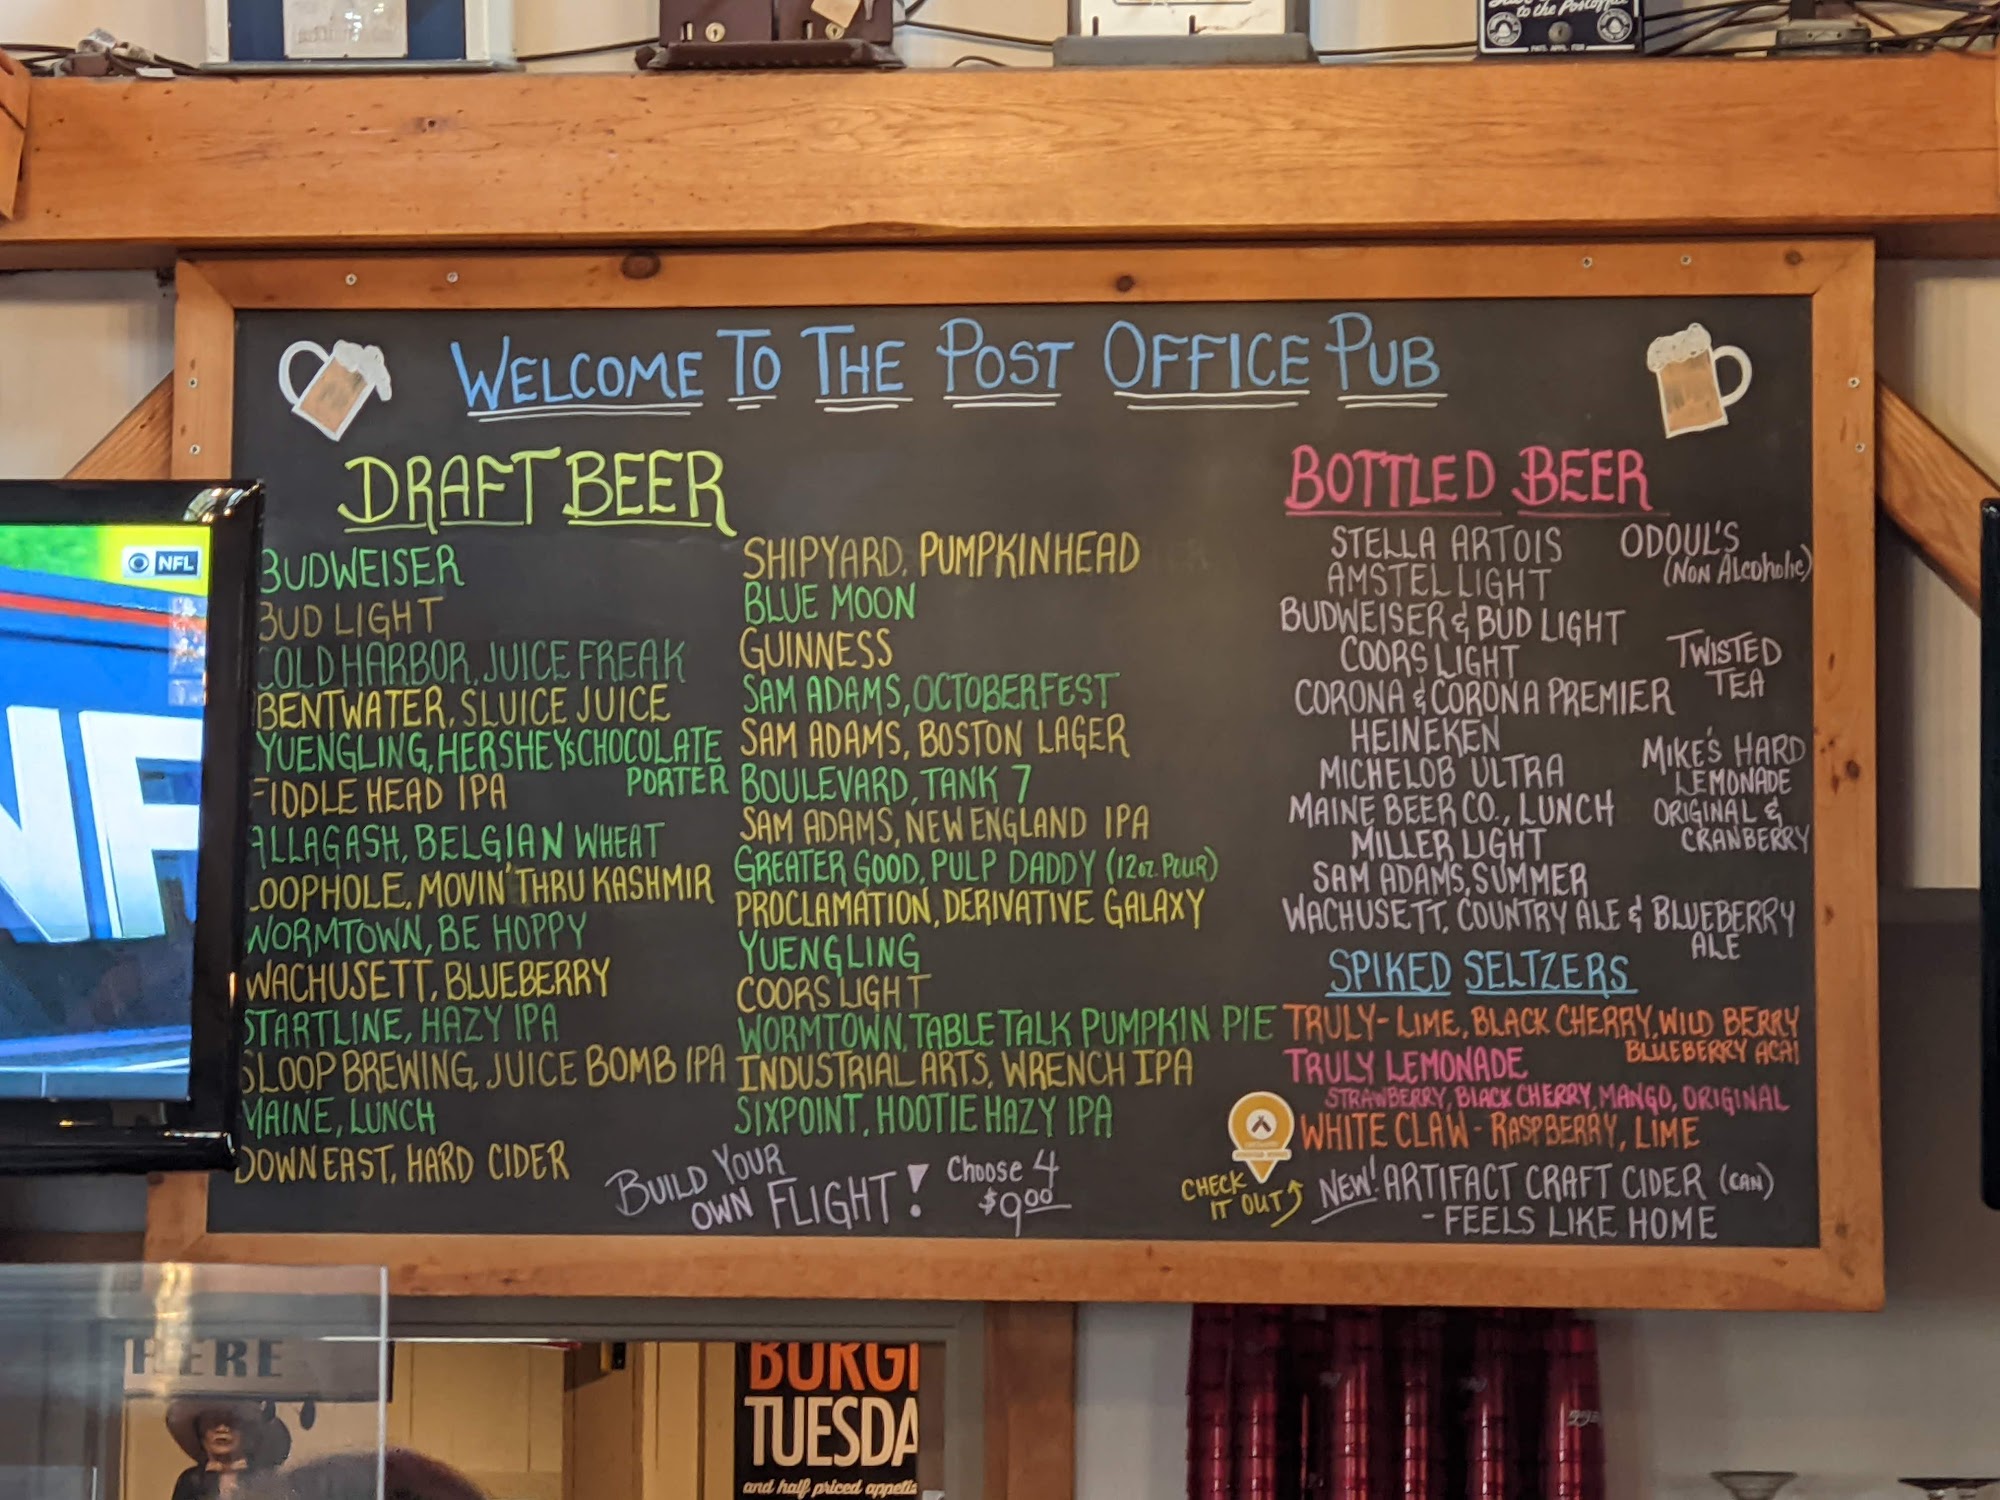 to the Postoffice
WELCOME TO THE POST OFFICE PUB
DRAFT BEER
BUDWEISER
BUD LIGHT
COLD HARBOR, JUICE FREAK
BENTWATER, SLUICE JUICE
YUENGLING, HERSHEYs CHOCOLATE
PORTER
FIDDLE HEAD IPA
ALLAGASH, BELGIAN WHEAT
LOOPHOLE, MOVIN' THRU KASHMIR
WORMTOWN, BE HOPPY
WACHUSETT, BLUEBERRY
STARTLINE, HAZY IPA
SLOOP BREWING, JUICE BOMB IPA
MAINE, LUNCH
DOWNEAST, HARD CIDER
SHIPYARD, PUMPKINHEAD
BLUE MOON
GUINNESS
SAM ADAMS, OCTOBERFEST
SAM ADAMS, BOSTON LAGER
BOULEVARD, TANK 7
SAM ADAMS, NEW ENGLAND IPA
GREATER GOOD, PULP DADDY (12oz. POUR)
PROCLAMATION, DERIVATIVE GALAXY
YUENGLING
COORS LIGHT
WORMTOWN, TABLE TALK PUMPKIN PIE
INDUSTRIAL ARTS, WRENCH IPA
SIXPOINT, HOOTIE HAZY IPA
BUILD YOUR
OWN FLIGHT! Choose 4
$9.00
BOTTLED BEER
STELLA ARTOIS
AMSTEL LIGHT
BUDWEISER & BUD LIGHT
COORS LIGHT
CORONA & CORONA PREMIER
HEINEKEN
MICHELOB ULTRA
MAINE BEER CO., LUNCH
MILLER LIGHT
SAM ADAMS, SUMMER
WACHUSETT, COUNTRY ALE & BLUEBERRY
ALE
ODOUL'S
(NON Alcoholic)
TWISTED
TEA
MIKE'S HARD
LEMONADE
ORIGINAL &
CRANBERRY
SPIKED SELTZERS
TRULY- LIME, BLACK CHERRY, WILD BERRY
BLUEBERRY ACAI
TRULY LEMONADE
STRAWBERRY, BLACK CHERRY, MANGO, ORIGINAL
WHITE CLAW - RASPBERRY, LIME
CHECK
IT OUT
NEW! ARTIFACT CRAFT CIDER (CAN)
- FEELS LIKE HOME
NFL
NF
HERE
BURG
TUESDA
and half priced appetiz